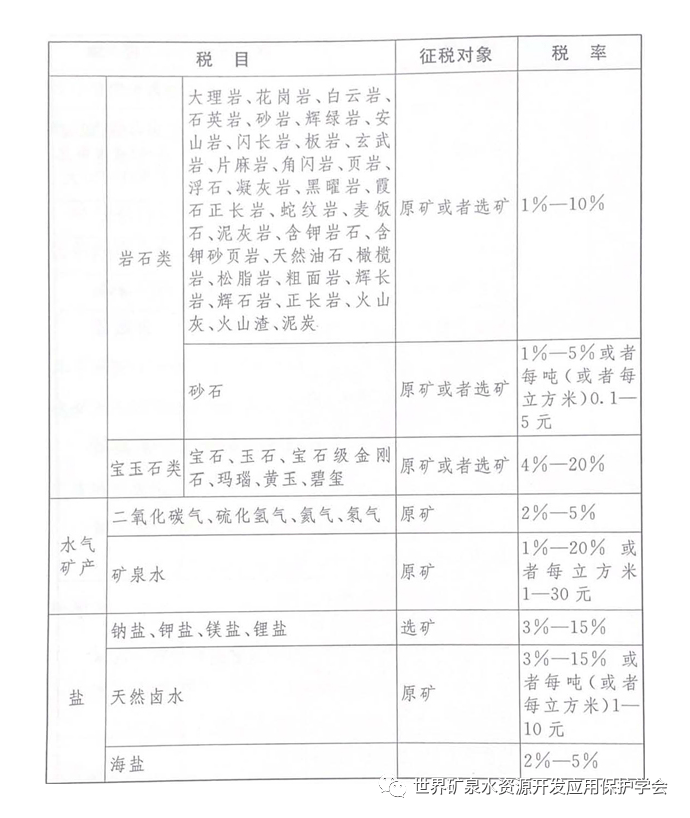 税 目
征税对象
税 率
岩石类
大理岩、花岗岩、白云岩、
石英岩、砂岩、辉绿岩、安
山岩、闪长岩、板岩、玄武
岩、片麻岩、角闪岩、页岩、
浮石、凝灰岩、黑曜岩、霞
石正长岩、蛇纹岩、麦饭
石、泥灰岩、含钾岩石、含
钾砂页岩、天然油石、橄榄
岩、松脂岩、粗面岩、辉长
岩、辉石岩、正长岩、火山
灰、火山渣、泥炭
原矿或者选矿
1%—10%
砂石
原矿或者选矿
1%—5%或者
每吨(或者每
立方米)0.1—
5元
宝玉石类
宝石、玉石、宝石级金刚
石、玛瑙、黄玉、碧玺
原矿或者选矿
4%—20%
水气
矿产
二氧化碳气、硫化氢气、氦气、氡气
原矿
2%—5%
矿泉水
原矿
1%—20% 或
者每立方米
1—30元
盐
钠盐、钾盐、镁盐、锂盐
选矿
3%—15%
天然卤水
原矿
3%—15% 或
者每吨(或者
每立方米)1—
10元
海盐
2%—5%
世界矿泉水资源开发应用保护学会